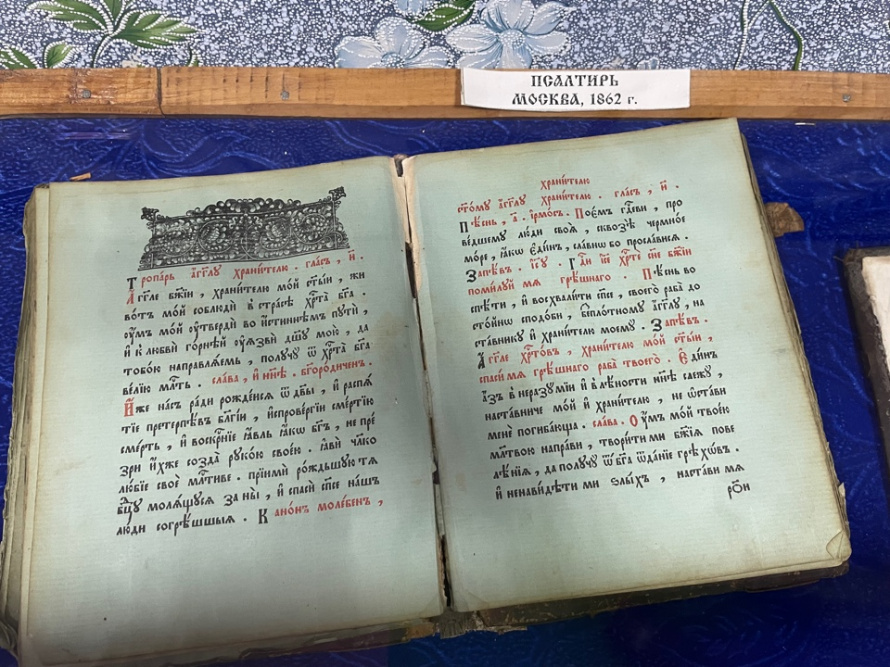 ПСАЛТИРЬ
МОСКВА, 1862 г.
Тропарь а҆́гг҃лу храни́телю . гла́съ , и҃ .
А҆́гг҃ле бж҃їи , храни́телю мо́й ст҃ы́и , жи
во́тъ мо́й соблюдѝ в̾ стра́сѣ хр҃та̀ бг҃а .
ѹ҆́мъ мо́й ѹ҆твердѝ во и҆́стиннѣмъ пꙋтѝ ,
и҆ к̾ любвѝ го́рнѣй ѹ҆ѧзвѝ дш҃ꙋ мою̀ , да
тобо́ю направлѧ́емь , полꙋчꙋ̀ ѿ хр҃та̀ бг҃а
ве́лїю мл҃ть . сла́ва , и҆ ны́нѣ . бг҃оро́диченъ .
И҆́же на́съ ра́ди рожде́исѧ ѿ дв҃ы , и҆ распѧ́
тїе претерпѣ́въ бл҃гі́и , и҆спрове́ргїи сме́ртїю
сме́рть , и҆ воскрⷭ҇нїе ꙗ҆́вль ꙗ҆́кѡ бг҃ъ , не пре́
зри и҆́хже созда̀ рꙋко́ю свое́ю . ꙗ҆вѝ чл҃ко
лю́бїе своѐ мл҃тиве . прїимѝ ро́ждьшꙋю тѧ
бцⷣꙋ молѧ́щꙋсѧ за ны̀ , и҆ спасѝ сп҃се на́шъ
лю́ди согрѣ́шшыѧ . Кано́нъ моле́бенъ ,
храни́телю
ст҃о́мꙋ а҆́гг҃лꙋ храни́телю . гла́съ , и҃ .
Пѣ́снь , а҃ . і҆рмо́съ . Пое́мъ гдⷭ҇еви , про
ве́дшемꙋ лю́ди своѧ̀ , сквозѣ̀ чермно́е
мо́ре , ꙗ҆́кѡ є҆ди́нъ , сла́внѡ бо просла́висѧ .
Запѣ́въ . і҆сꙋ . Гдⷭ҇и і҆и҃се хр҃тѐ сн҃е бж҃їи
поми́лꙋй мѧ̀ грѣ́шнаго . Пѣ́снь во
спѣ́ти , и҆ восхвали́ти сп҃се , своего̀ раба̀ до
сто́йнѡ сподо́би , беспло́тномꙋ а҆́гг҃лꙋ , на
ста́вникꙋ и҆ храни́телю моемꙋ̀ . Запѣ́въ .
А҆́гг҃ле хр҃то́въ , храни́телю мо́й ст҃ы́и
спасѝ мѧ̀ грѣ́шнаго раба̀ твоего̀ . Є҆ди́нъ
а҆́зъ в̾ неразꙋ́мїи и҆ в̾ лѣ́ности ны́нѣ слежꙋ̀ ,
наста́вниче мо́й и҆ храни́телю , не ѡ҆ста́ви
менѐ погиба́юща . сла́ва . Оу҆́мъ мо́й твое́ю
мл҃твою напра́ви , твори́ти ми бж҃їѧ пове
лѣ́нїѧ , да полꙋчꙋ̀ ѿ бг҃а ѿда́нїе грѣхѡ́въ .
и҆ ненави́дѣти ми ѕлы́хъ , наста́ви мѧ